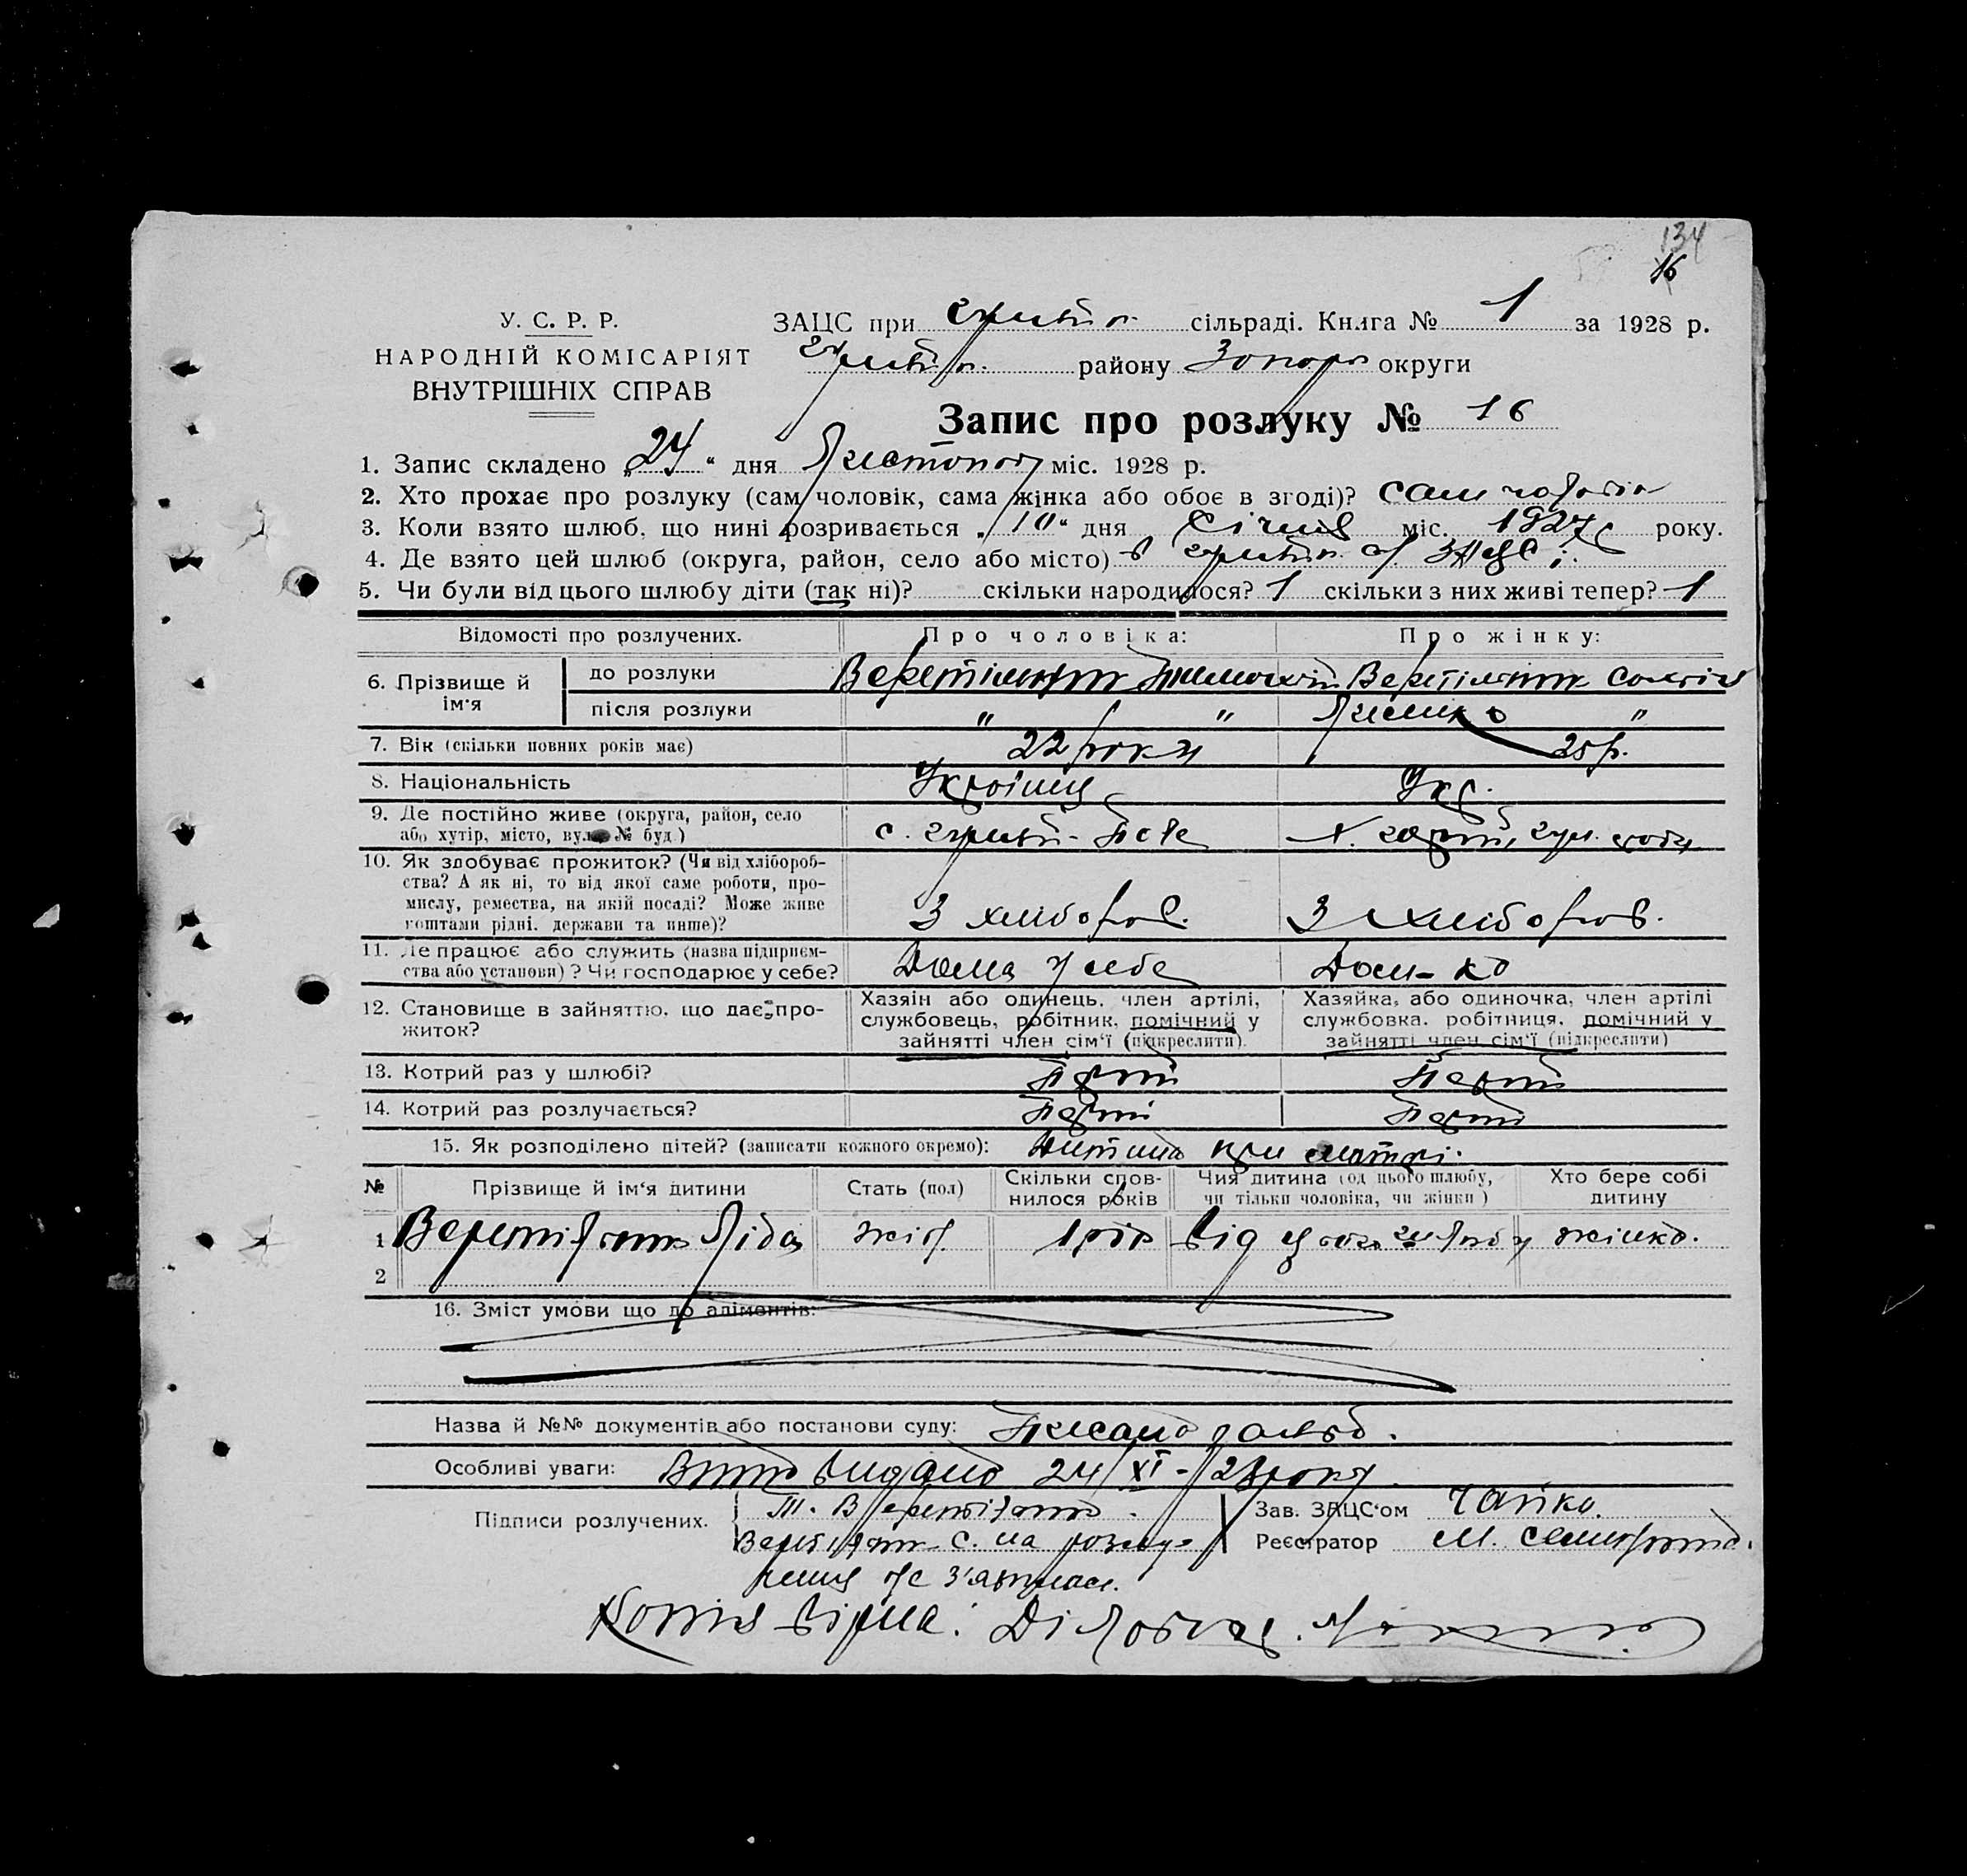 134
16
У. С. Р. Р.
НАРОДНІЙ КОМІСАРІЯТ
ВНУТРІШНІХ СПРАВ
ЗАЦС при сільраді. Книга № 1 за 1928 р.
району Запоріз округи
Запис про розлуку № 16
1. Запис складено „24“ дня Листопад міс. 1928 р.
2. Хто прохає про розлуку (сам чоловік, сама жінка або обоє в згоді)? сам чоловік
3. Коли взято шлюб, що нині розривається „10“ дня Січня міс. 1927 року.
4. Де взято цей шлюб (округа, район, село або місто) в
5. Чи були від цього шлюбу діти (так ні)? скільки народилося? 1 скільки з них живі тепер? 1
Відомості про розлучених. Про чоловіка: Про жінку:
6. Прізвище й ім'я до розлуки Веретільник Тимохій Веретільник
після розлуки " " "
7. Вік (скільки повних років має) 22 роки 25 р.
8. Національність Українець Укр.
9. Де постійно живе (округа, район, село
або хутір, місто, вул. № буд.) с.
10. Як здобуває прожиток? (Чи від хлібороб-
ства? А як ні, то від якої саме роботи, про-
мислу, ремества, на якій посаді? Може живе
коштами рідні, держави та инше)? З хлібороб. З хлібороб.
11. Де працює або служить (назва підприєм-
ства або установи)? Чи господарює у себе? Дома у себе
12. Становище в зайняттю, що дає про-
житок?
Хазяїн або одинець, член артілі,
службовець, робітник, помічний у
зайнятті член сім'ї (підкреслити).
Хазяйка, або одиночка, член артілі
службовка, робітниця, помічний у
зайнятті член сім'ї (підкреслити)
13. Котрий раз у шлюбі? Перший Перший
14. Котрий раз розлучається? Перший Перший
15. Як розподілено дітей? (записати кожного окремо): Дитина при матері.
№ Прізвище й ім'я дитини Стать (пол) Скільки спов-
нилося років Чия дитина (од цього шлюбу,
чи тільки чоловіка, чи жінки) Хто бере собі
дитину
1 Веретільник Ліда жін. 1 рік Від цього шлюбу жінка.
2
16. Зміст умови що до аліментів:
Назва й №№ документів або постанови суду: Писана заява.
Особливі уваги: Витяг видано 24/XI-28 року.
Підписи розлучених. Т. Веретільник.
Веретільник С. на розлу-
чення не з'явилась.
Зав. ЗАЦС'ом Чайка.
Реєстратор М.
Копія вірна: Діловод.